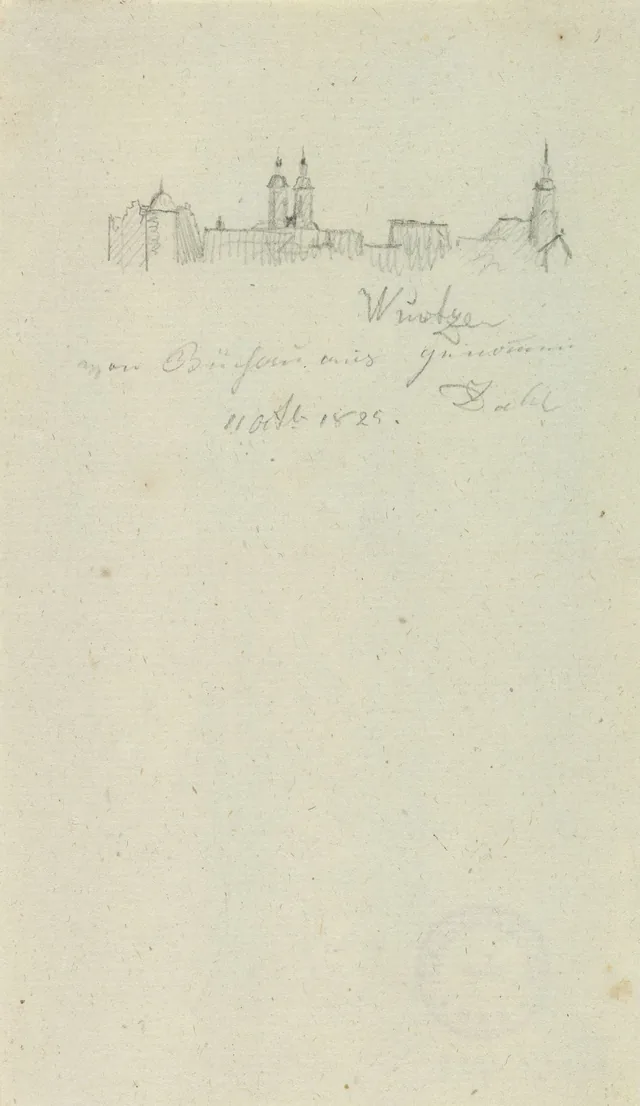 Wurtzen
von Büchau aus genomen
Dahl
11 octb 1829.